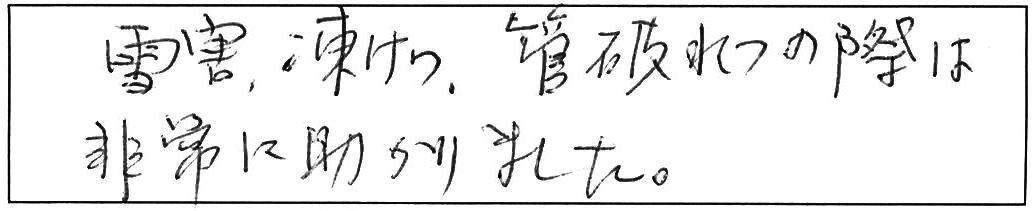 雪害、凍けつ、管破れつの際は
非常に助かりました。